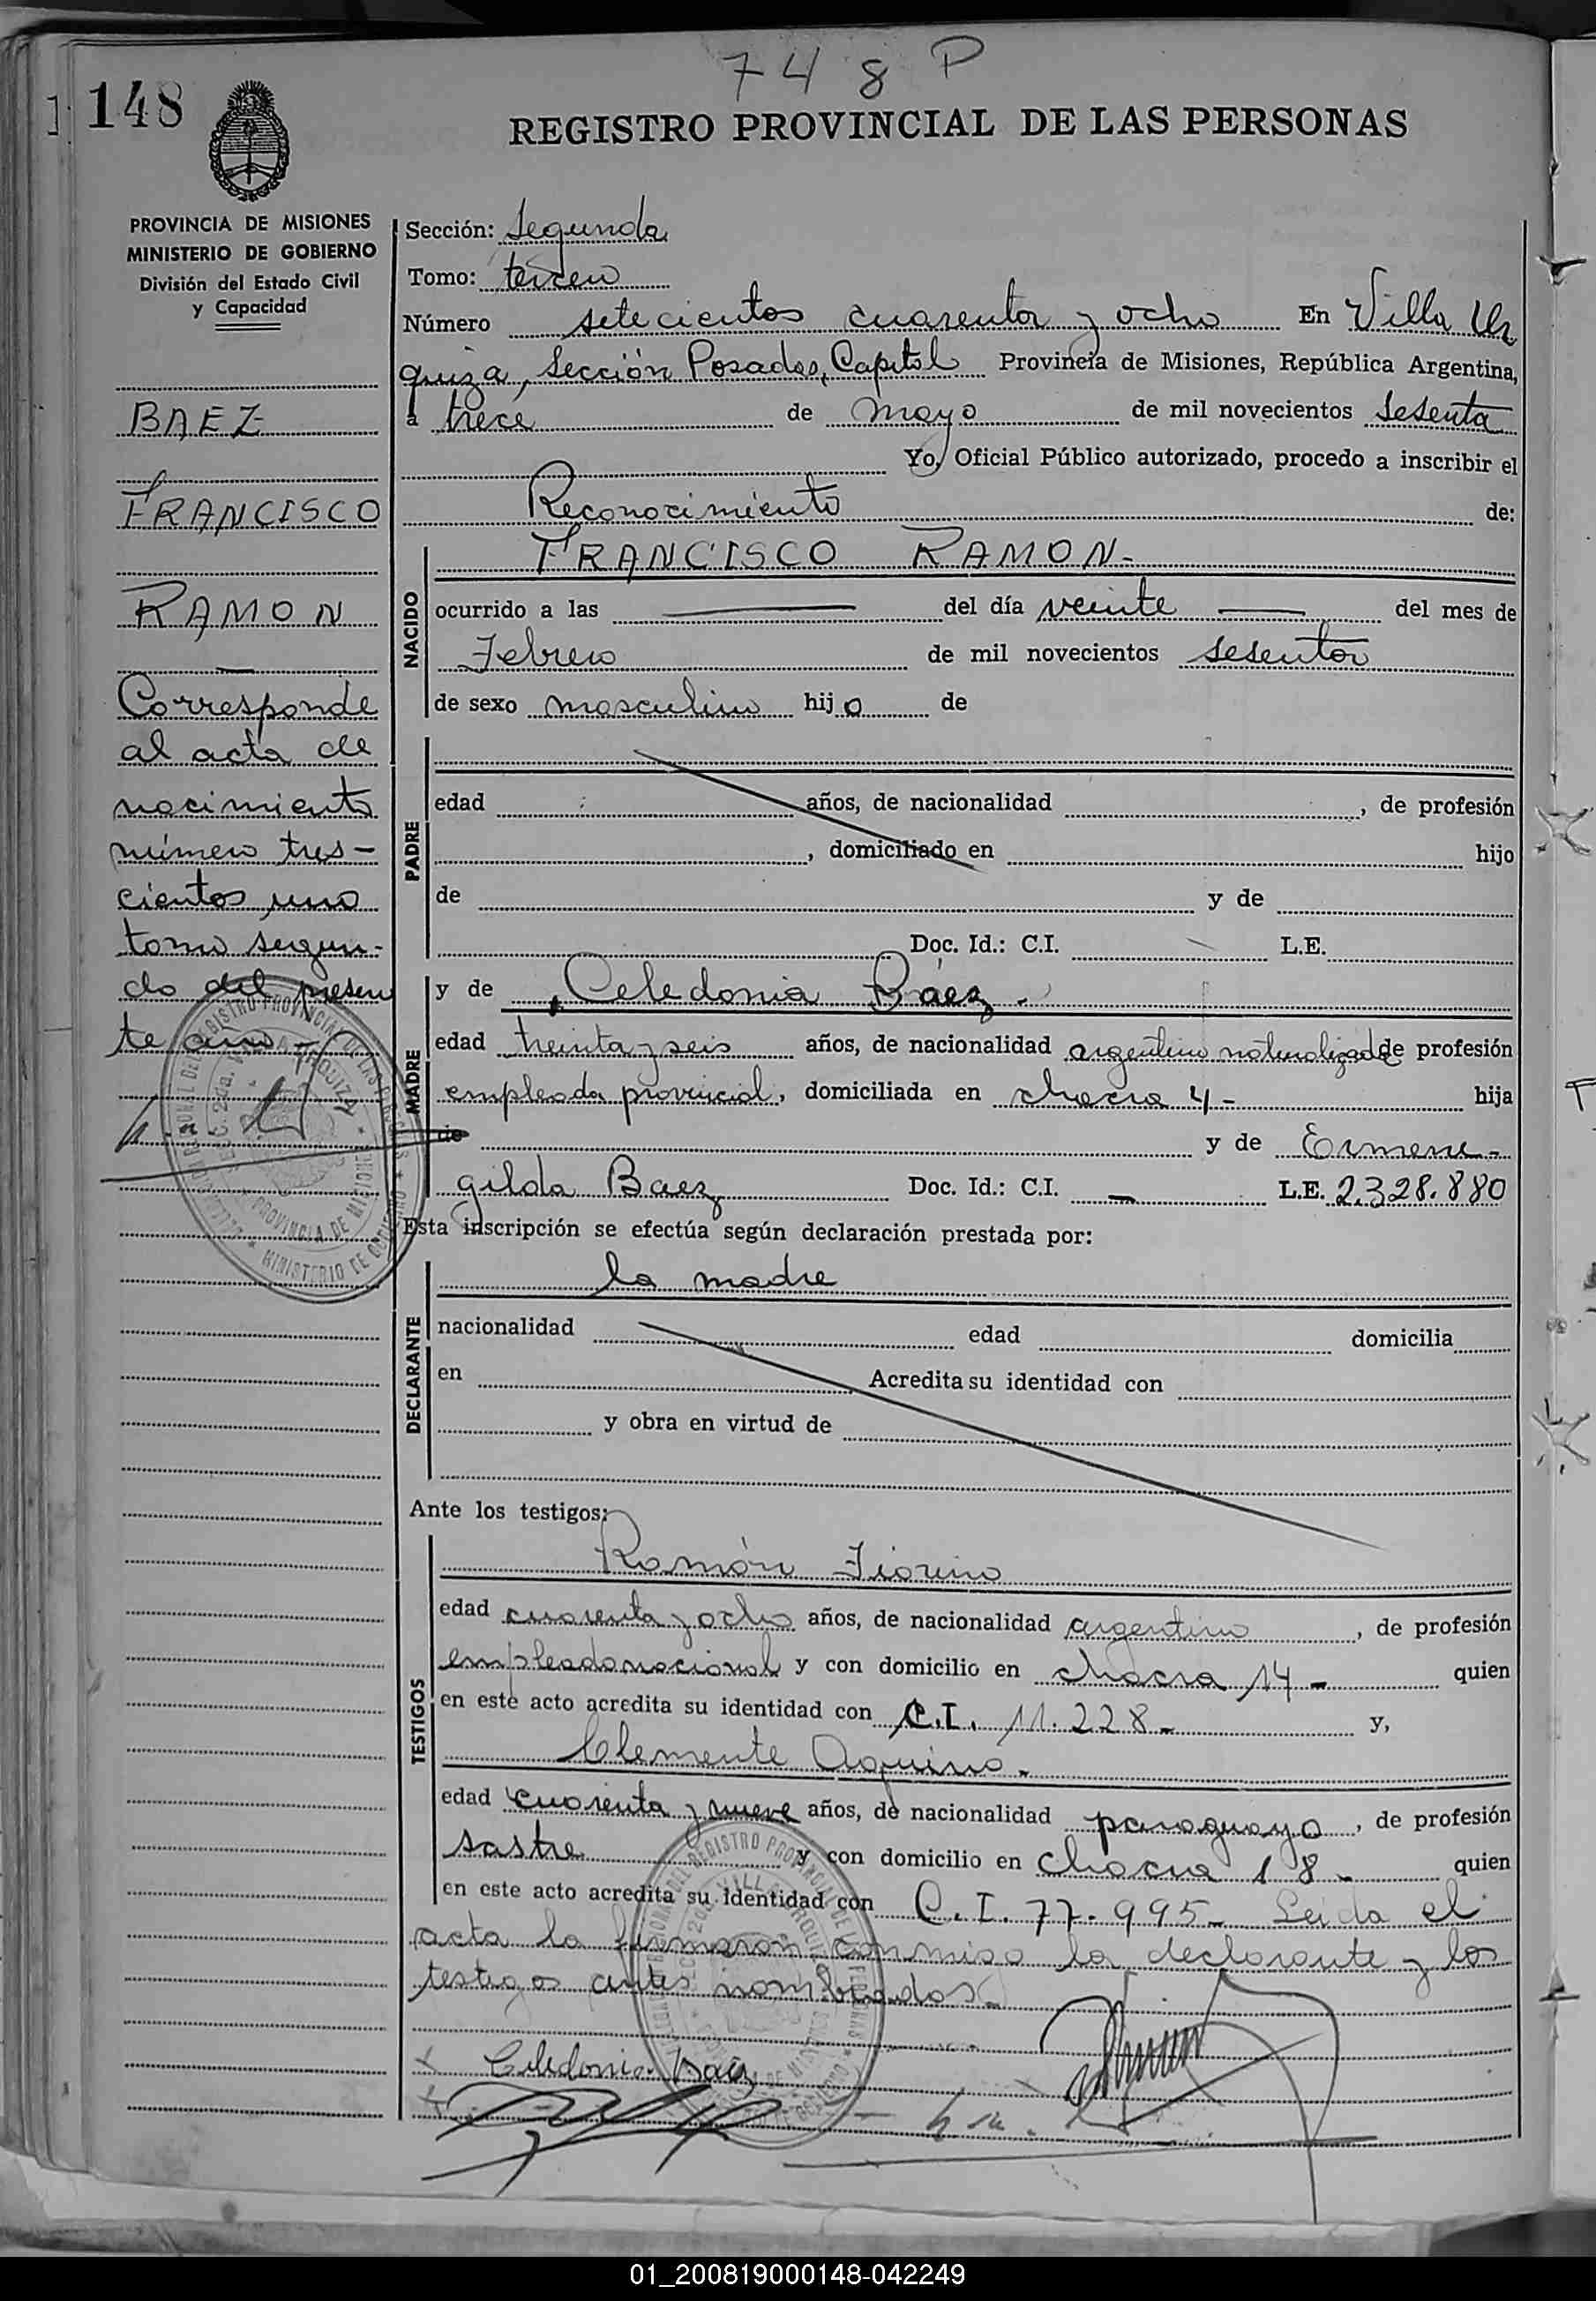 748 P
148
REGISTRO PROVINCIAL DE LAS PERSONAS
PROVINCIA DE MISIONES
MINISTERIO DE GOBIERNO
División del Estado Civil
y Capacidad
BAEZ
FRANCISCO
RAMON
Corresponde
al acta de
nacimiento
número tres-
cientos uno
tomo segun-
do del presen
te año -
Sección: Segunda
Tomo: tercero
Número setecientos cuarenta y ocho En Villa Ur
quiza, Sección Posadas, Capital Provincia de Misiones, República Argentina,
a trece de mayo de mil novecientos sesenta
Yo, Oficial Público autorizado, procedo a inscribir el
Reconocimiento de:
NACIDO
FRANCISCO RAMON-
ocurrido a las del día veinte del mes de
Febrero de mil novecientos sesenta
de sexo masculino hijo de
PADRE
edad años, de nacionalidad , de profesión
, domiciliado en hijo
de y de
Doc. Id.: C.I. L.E.
MADRE
y de Celedonia Báez.
edad treinta y seis años, de nacionalidad argentina naturalizada de profesión
empleada provincial, domiciliada en chacra 4- hija
de y de Ermene-
gilda Baez Doc. Id.: C.I. - L.E. 2.328.880
Esta inscripción se efectúa según declaración prestada por:
DECLARANTE
la madre
nacionalidad edad domicilia
en Acredita su identidad con
y obra en virtud de
Ante los testigos:
TESTIGOS
Ramón Fiorino
edad cuarenta y ocho años, de nacionalidad argentino, de profesión
empleado nacional y con domicilio en chacra 14- quien
en este acto acredita su identidad con C.I. 11.228- y,
Clemente Aquino.
edad cuarenta y nueve años, de nacionalidad paraguayo, de profesión
sastre y con domicilio en chacra 18- quien
en este acto acredita su identidad con C.I. 77.995- Leida el
acta la firmaron conmigo la declarante y los
testigos antes nombrados-
Celedonia Baez
01_200819000148-042249